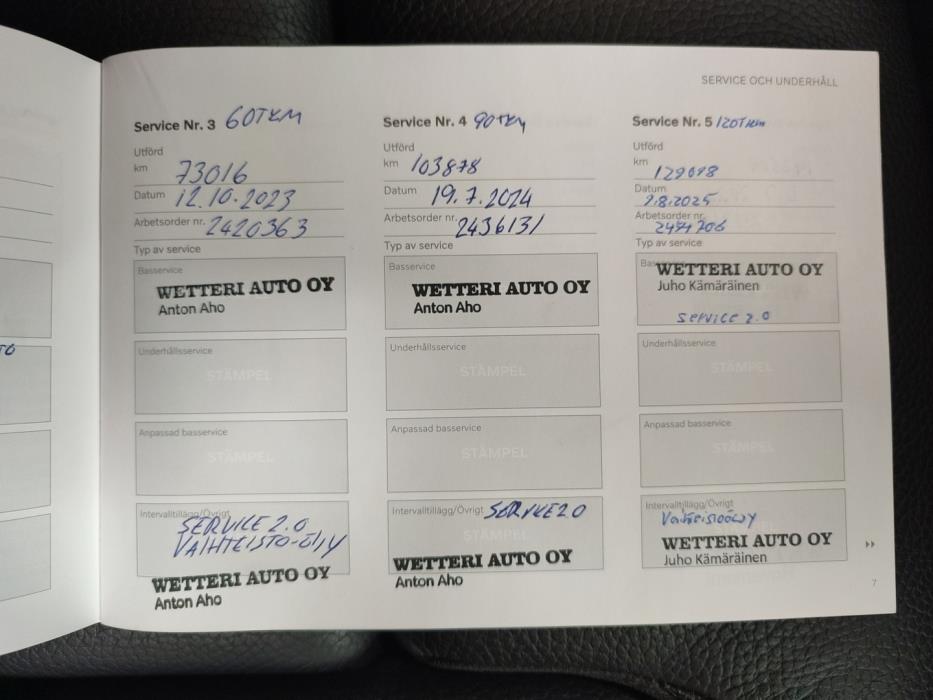 SERVICE OCH UNDERHÅLL
Service Nr. 3 60TKM
Utförd
km 73016
Datum 12.10.2023
Arbetsorder nr. 2420363
Typ av service
Basservice
WETTERI AUTO OY
Anton Aho
Underhållsservice
STÄMPEL
Anpassad basservice
STÄMPEL
Intervalltillägg/Övrigt
SERVICE 2.0
VAIHTEISTO-ÖLJY
WETTERI AUTO OY
Anton Aho
Service Nr. 4 90TKM
Utförd
km 103878
Datum 19.7.2024
Arbetsorder nr. 2436131
Typ av service
Basservice
WETTERI AUTO OY
Anton Aho
Underhållsservice
STÄMPEL
Anpassad basservice
STÄMPEL
Intervalltillägg/Övrigt SERVICE 2.0
STÄMPEL
WETTERI AUTO OY
Anton Aho
Service Nr. 5 120Tkm
Utförd
km
Datum
Arbetsorder nr.
Typ av service
WETTERI AUTO OY
Juho Kämäräinen
Service 2.0
Underhållsservice
STÄMPEL
Anpassad basservice
STÄMPEL
Intervalltillägg/Övrigt
WETTERI AUTO OY
Juho Kämäräinen
7